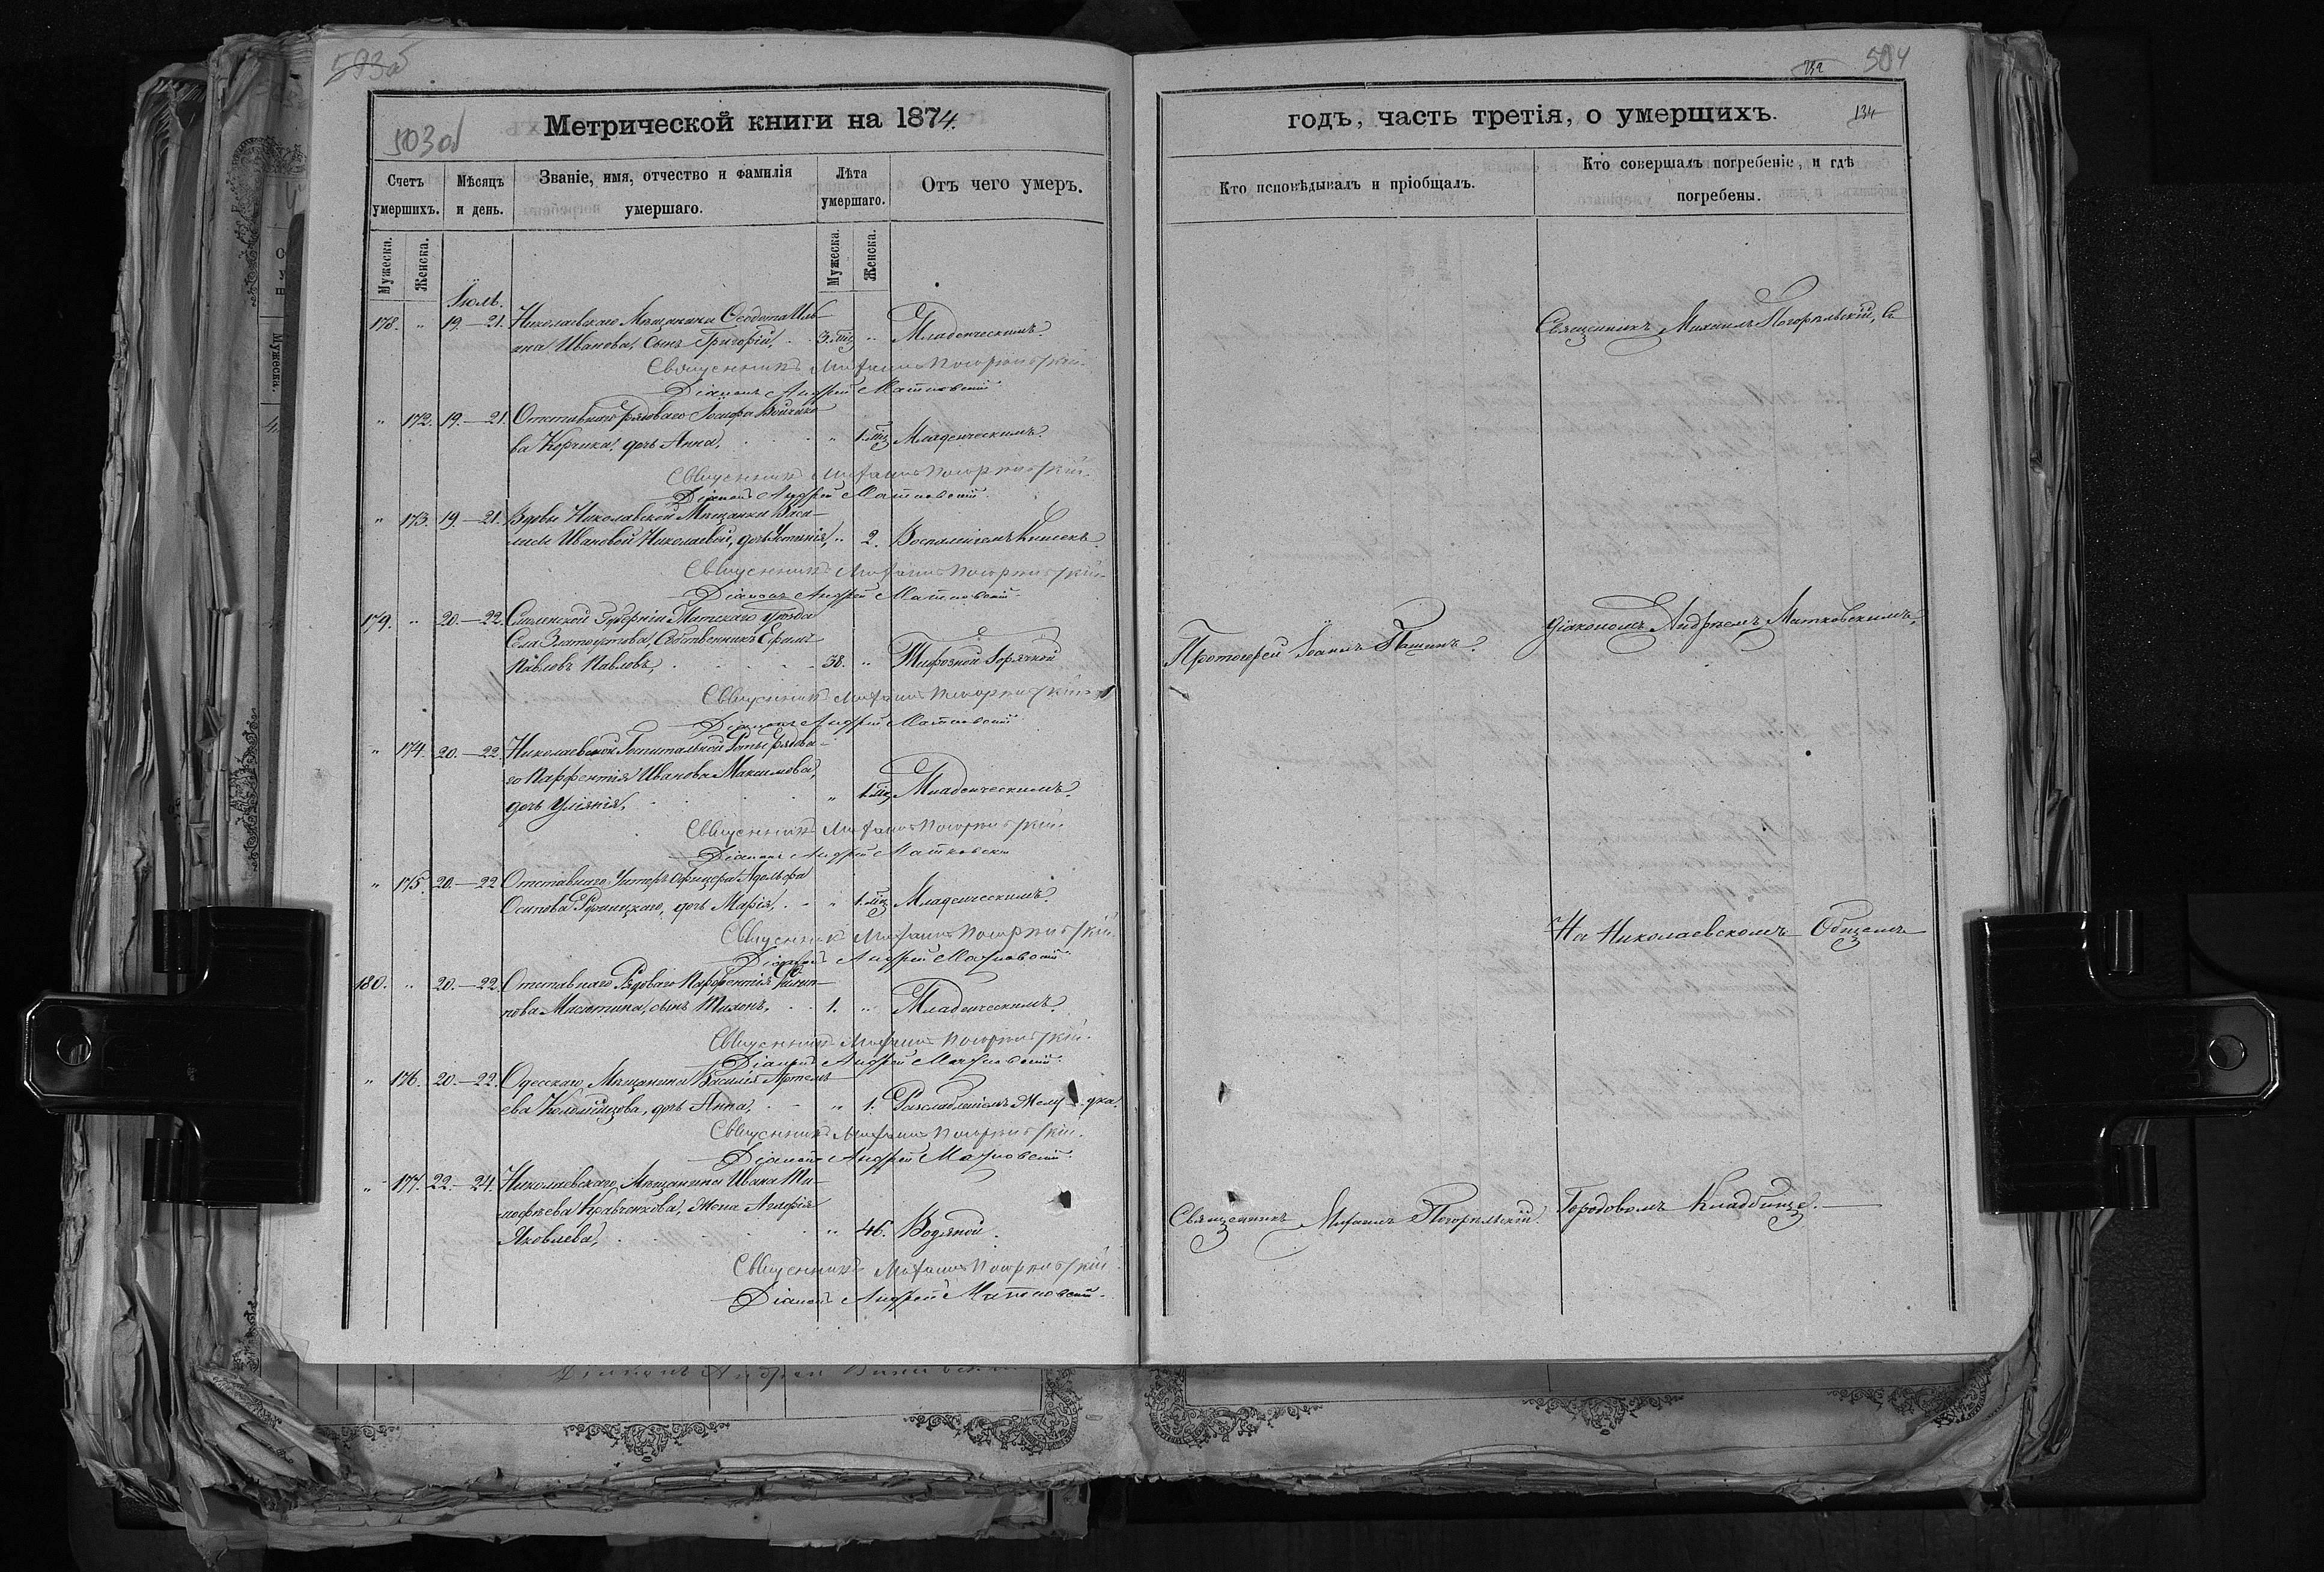 503об
503об
Метрической книги на 1874.
Счетъ умершихъ.
Мѣсяцъ и день.
Званіе, имя, отчество и фамилія умершаго.
Лѣта умершаго.
Отъ чего умеръ.
Мужеска.
Женска.
Мужеска.
Женска.
Іюль.
178. " 19.—21. Николаевскаго Мѣщанина Ѳеодота Иль-
ина Иванова, сынъ Григорій, 3. мѣс. " Младенческимъ.
Священникъ Михаилъ Погорѣльскій.
Діаконъ Андрей Матковскій
" 172. 19.—21. Отставнаго рядоваго Іосифа
ва Корчика, дочь Анна, " 1. мѣс. Младенческимъ.
Священникъ Михаилъ Погорѣльскій.
Діаконъ Андрей Матковскій
" 173. 19.—21. Вдовы Николаевской Мѣщанки Васи-
лисы Ивановой Николаевой, дочь " 2. Воспаленіемъ Кишекъ.
Священникъ Михаилъ Погорѣльскій
Діаконъ Андрей Матковскій
179. " 20.—22. Смоленской Губерніи уѣзда
Села Златоустова, Собственникъ Ефимъ
Павловъ Павловъ, 38. " Тифозной Горячкой
Священникъ Михаилъ Погорѣльскій
Діаконъ Андрей Матковскій
" 174. 20.—22. Николаевской Госпитальной Роты рядова-
го Парфентія Иванова Максимова,
дочь Уліянія, " 1. мѣс. Младенческимъ.
Священникъ Михаилъ Погорѣльскій.
Діаконъ Андрей Матковскій
" 175. 20.—22 Отставнаго Унтеръ Офицера Адольфа
Осипова дочь Марія, " 1. мѣс. Младенческимъ.
Священникъ Михаилъ Погорѣльскій.
Діаконъ Андрей Матковскій
180. " 20.—22. Отставнаго Рядоваго Парфентія Филип-
пова Масютина, сынъ Тихонъ, 1. " Младенческимъ.
Священникъ Михаилъ Погорѣльскій.
Діаконъ Андрей Матковскій
" 176. 20.—22. Одесскаго Мѣщанина Василія Артемь-
ева Коломійцова, дочь Анна, " 1. Разслабленіемъ Желудка.
Священникъ Михаилъ Погорѣльскій.
Діаконъ Андрей Матковскій
" 177. 22.—24. Николаевскаго Мѣщанина Ивана Ти-
мофѣева Кравченкова, жена Агафія
Яковлева, " 46. Водяной.
Священникъ Михаилъ Погорѣльскій
Діаконъ Андрей Матковскій.
504
134
годъ, часть третія, о умершихъ.
Кто исповѣдывалъ и пріобщалъ.
Кто совершалъ погребеніе, и гдѣ погребены.
Священникъ Михаилъ Погорѣльскій, съ
Діакономъ Андреемъ Матковскимъ,
Протоіерей Іоаннъ Пашинъ.
На Николаевскомъ Общемъ
Городовомъ Кладбищѣ.
Священникъ Михаилъ Погорѣльскій.